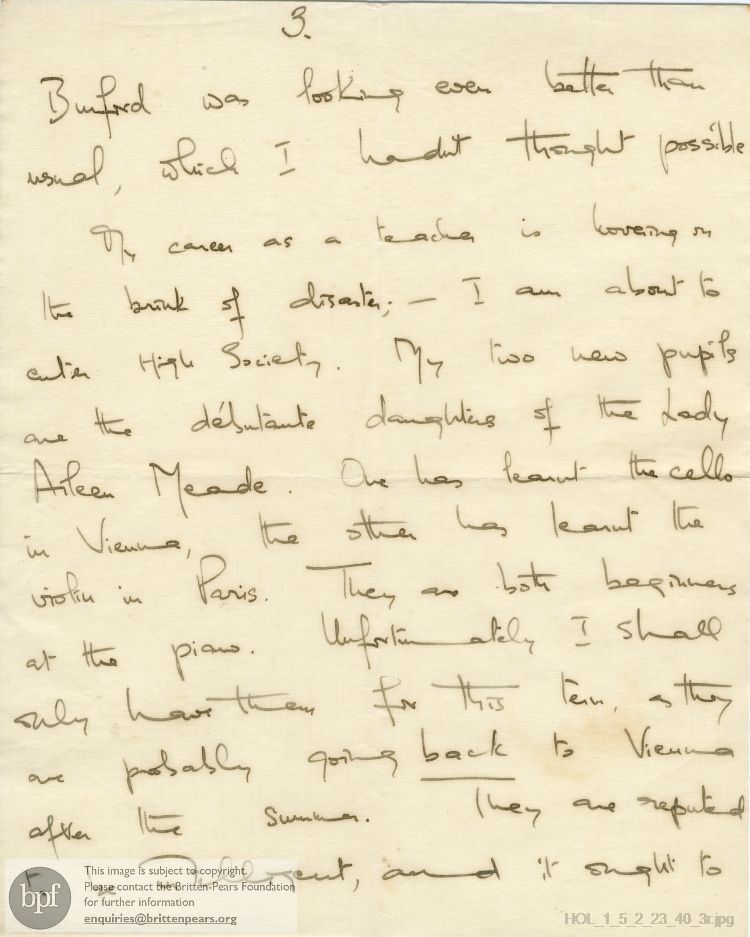 3.
Burford was looking even better than
usual, which I hadn't thought possible
My career as a teacher is hovering on
the brink of disaster; — I am about to
enter High Society. My two new pupils
are the débutante daughters of the Lady
Aileen Meade. One has learnt the cello
in Vienna, the other has learnt the
violin in Paris. They are both beginners
at the piano. Unfortunately I shall
only have them for this term, as they
are probably going back to Vienna
after the summer. They are reputed
to be Intelligent, and it ought to
bpf
This image is subject to copyright.
Please contact the Britten-Pears Foundation
for further information
enquiries@brittenpears.org
HOL_1_5_2_23_40_3r.jpg